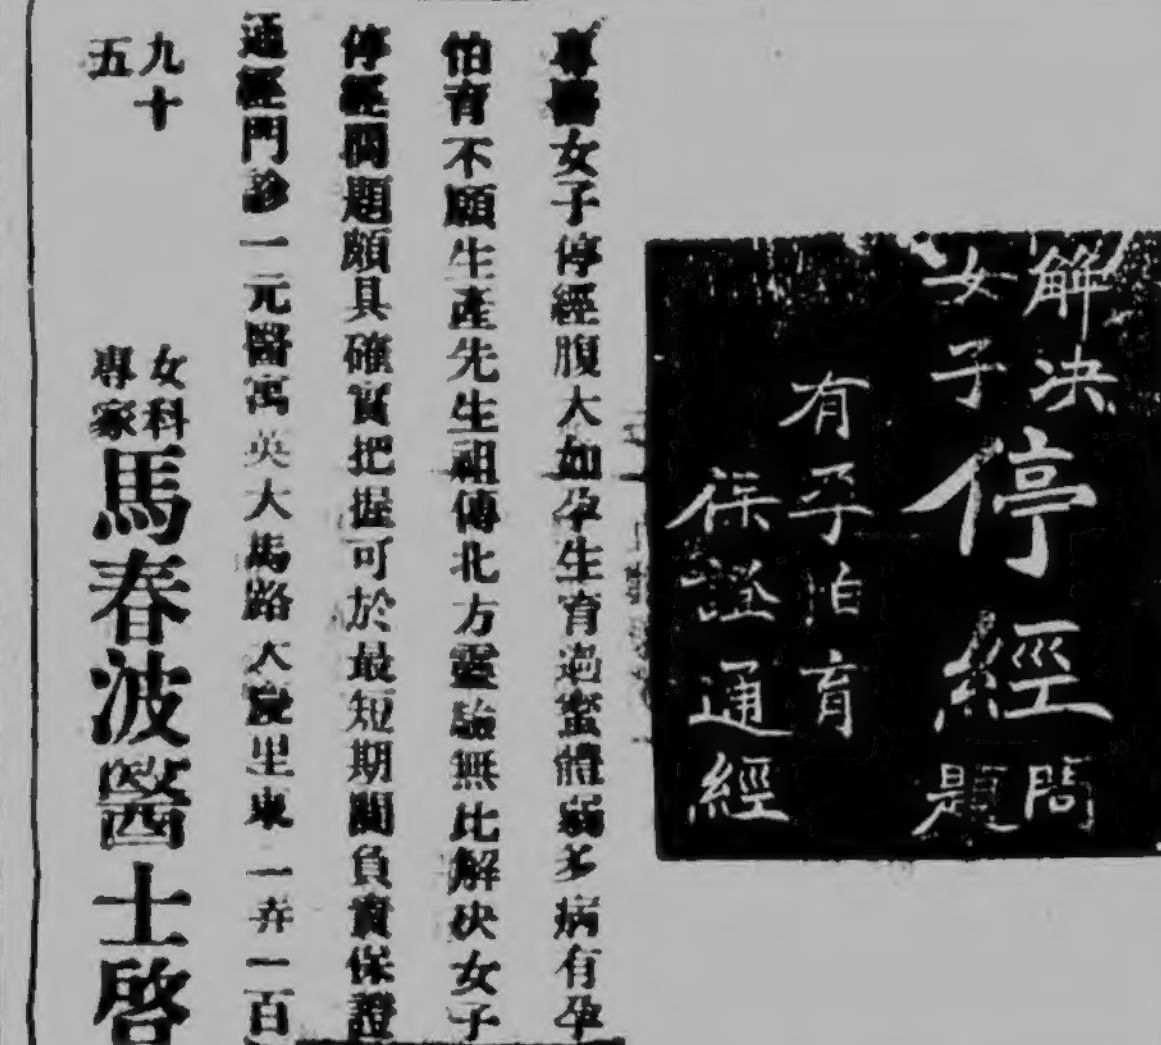 解決
女子
停經
問題
有孕怕育
保證通經
專醫女子停經腹大如孕生育過蜜體弱多病有孕
怕育不願生產先生祖傳北方靈驗無比解決女子
停經問題頗具確實把握可於最短期間負責保證
通經門診一元醫寓英大馬路大慶里東一弄一百
九十
五
女科
專家
馬春波醫士啓